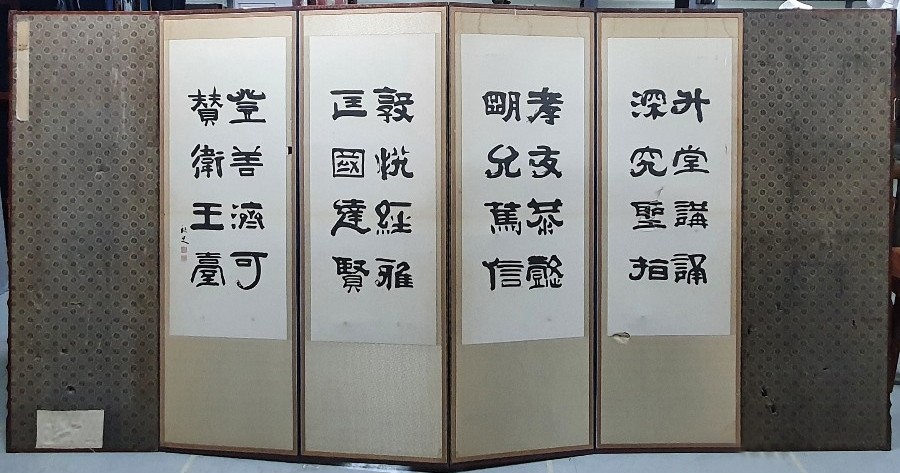 升堂講誦
深究聖指
孝友恭懿
明允篤信
敦悅經雅
匡國達賢
登善濟可
贊衛王臺